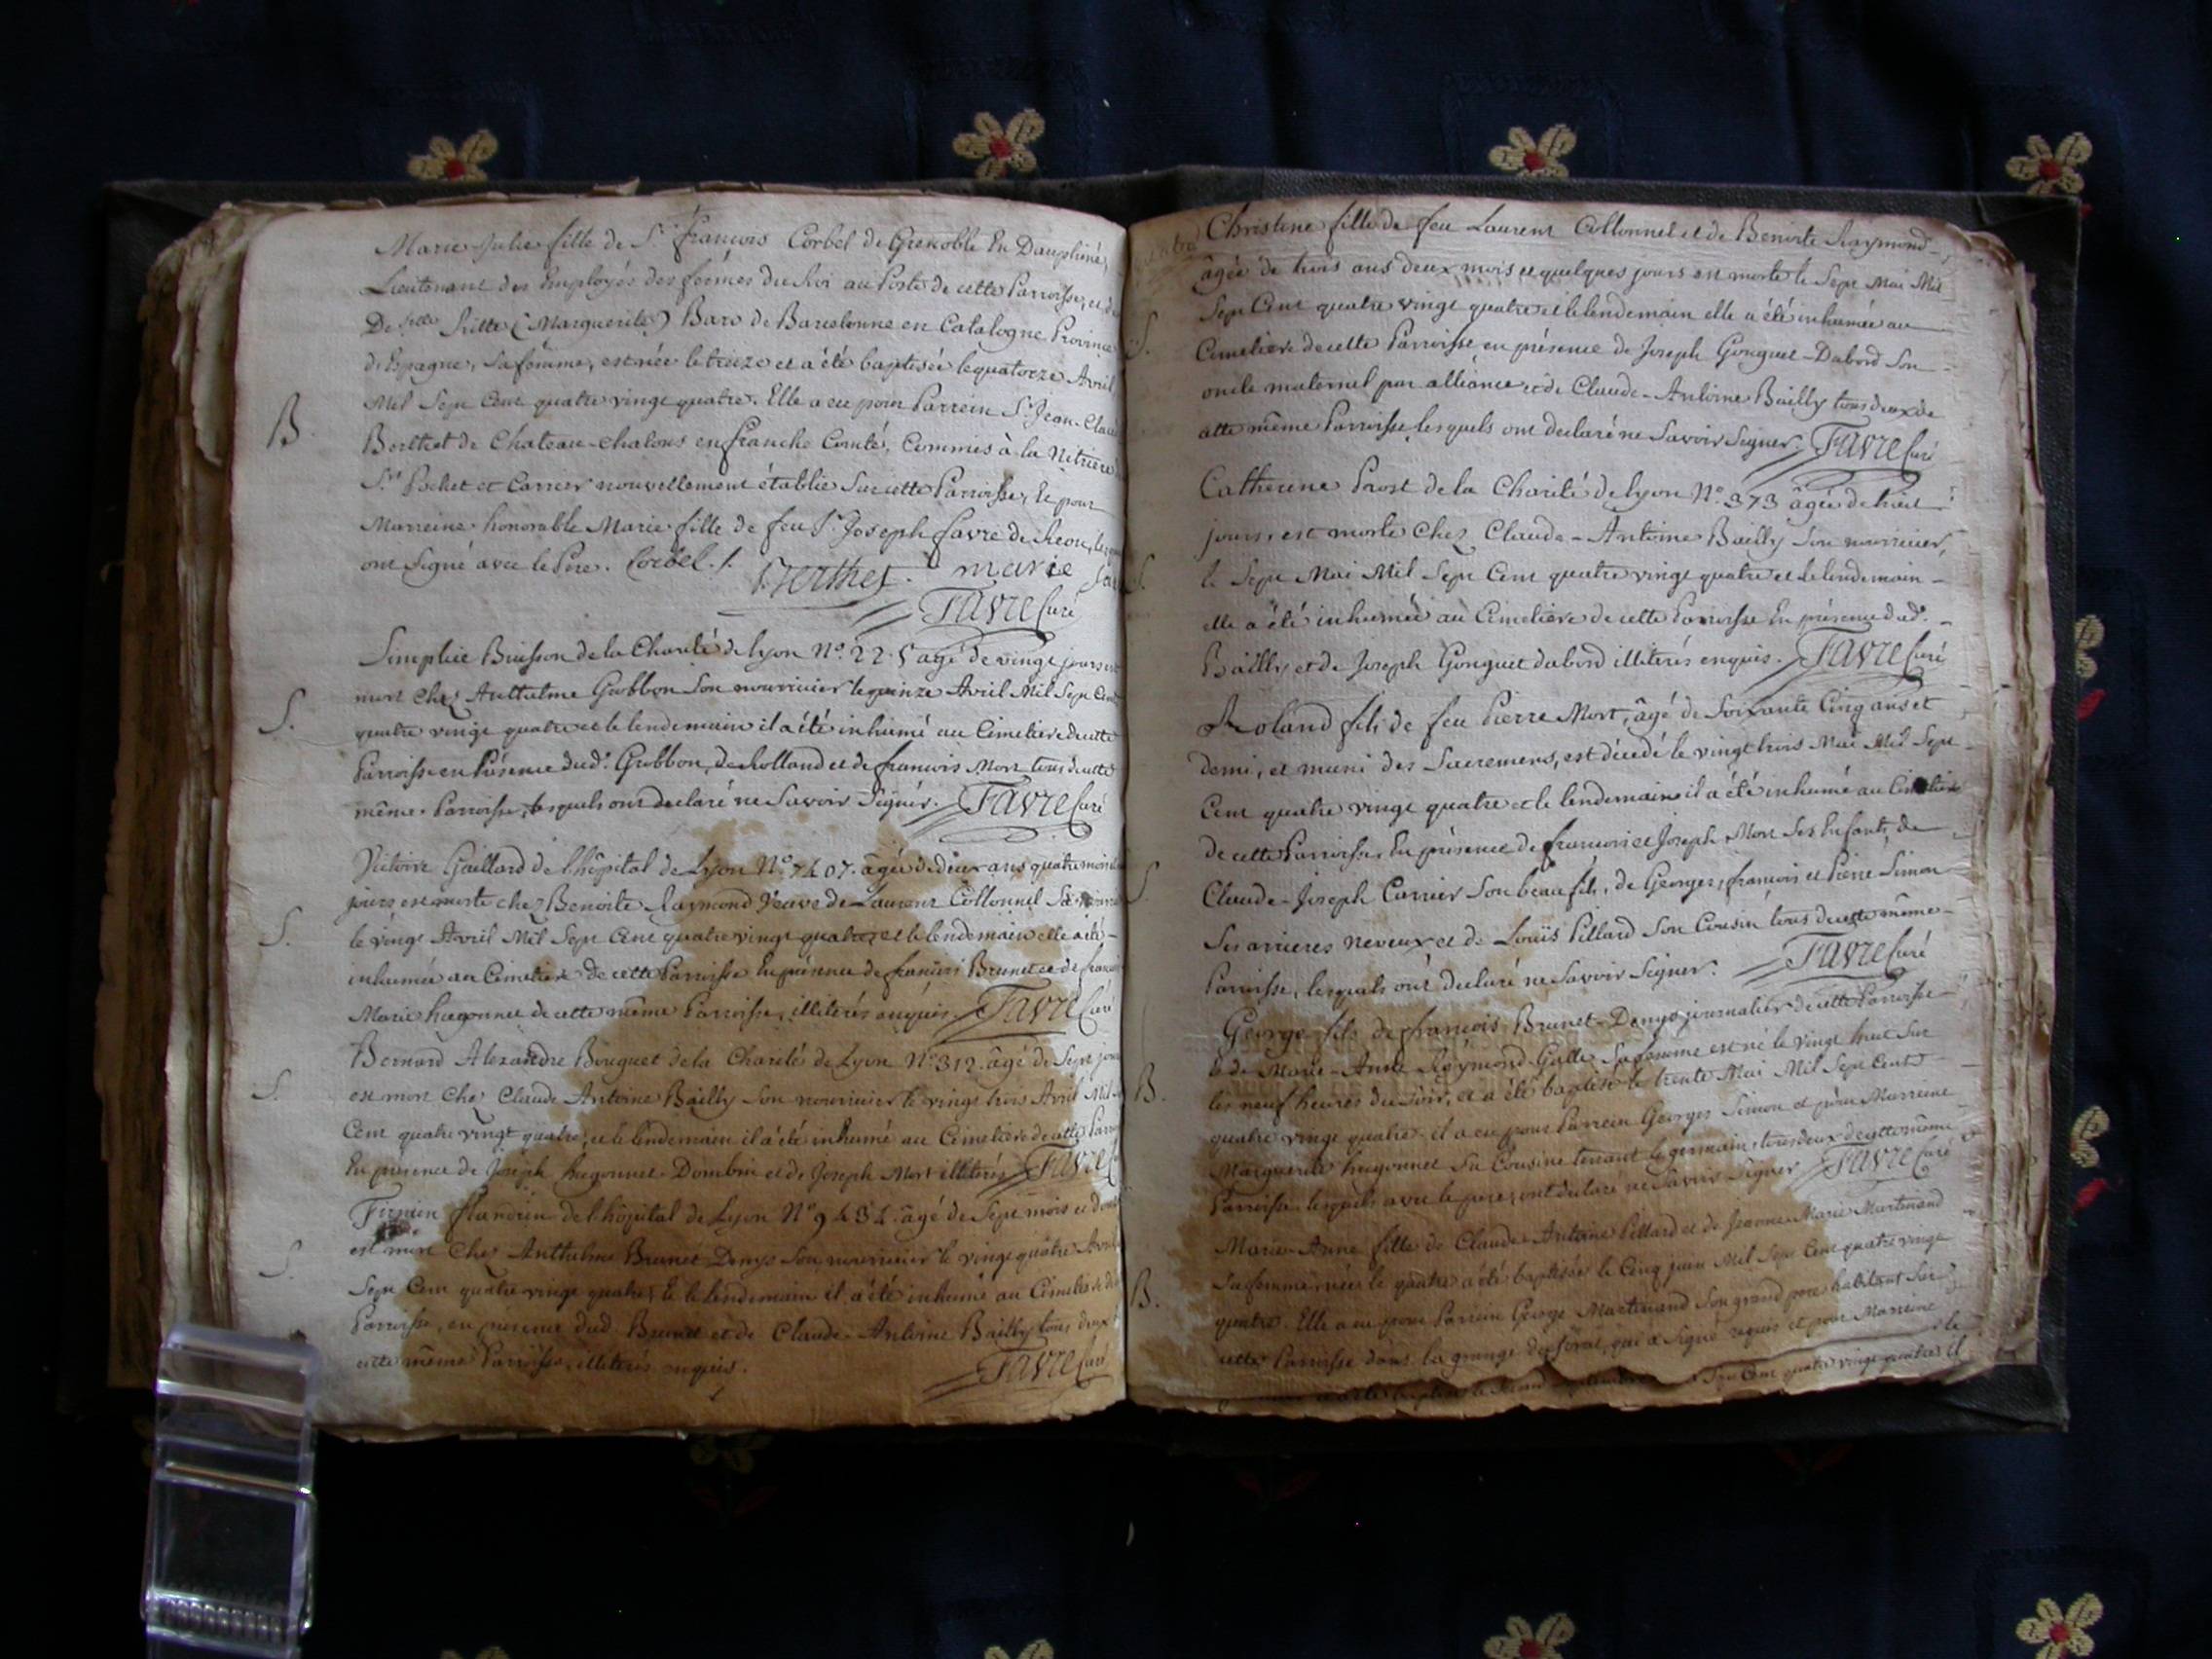 Marie Julie fille de Sr. françois Corbel de Grenoble En Dauphiné,
Lieutenant des Employés des fermes du Roi au Poste de cette Parroisse, et de
Delle Ritte (Marguerite) Baro de Barcelonne en Catalogne Province
d'Espagne, sa femme, est née le treize et a été baptisée le quatorze Avril
B. Mil Sept Cent quatre vingt quatre. Elle a eu pour Parrein Sr. Jean-Claude
Berthet de Chateau-chalons en franche Comté, Commis à la
Srs et Carrier nouvellement établie sur cette Parroisse, Et pour
Marreine honorable Marie fille de feu Sr. Joseph favre de
ont Signé avec le Pere. Corbel. /. Berthet. marie
Favre Curé
Simplice Buisson de la Charité de Lyon No. 225 agé de vingt jours est
S. mort chez Anthelme Gobbon son nourricier le quinze Avril Mil Sept Cent
quatre vingt quatre et le lendemain il a été inhumé au Cimetiere de cette
Parroisse en Présence dud. Gobbon, de Rolland et de francois Mort tous de cette
même Parroisse, lesquels ont declaré ne Savoir Signer. Favre Curé
Victoire Gaillard de l'hôpital de Lyon No. 7407. agée de deux ans quatre mois
jours est morte chez Benoite Raymond Veuve de Laurent Collonnel
S. le vingt Avril Mil Sept Cent quatre vingt quatre et le lendemain elle a été
inhumée au Cimetiere de cette Parroisse En présence de françois Brunet et de françois
Marie hugonnet de cette même Parroisse, illiterés enquis. Favre Curé
Bernard Alexandre Bouguet de la Charité de Lyon No 312. âgé de Sept jours
S. est mort chez Claude Antoine Bailly son nourricier le vingt trois Avril Mil
Cent quatre vingt quatre, et le lendemain il a été inhumé au Cimetiere de cette
En présence de Joseph hugonnet-Dombin et de Joseph Mort illiterés Favre
Firmin flandrin de l'hôpital de Lyon No 9434. âgé de Sept mois et
S. est mort chez Anthelme Brunet Denys son nourricier le vingt quatre Avril
Sept Cent quatre vingt quatre, et le lendemain il a été inhumé au Cimetiere de
Parroisse, en présence dud. Brunet et de Claude-Antoine Bailly tous deux
cette même Parroisse, illiterés enquis. Favre Curé
Christine fille de feu Laurent Collonnel et de Benoite Raymond
âgée de trois ans deux mois et quelques jours est morte le Sept Mai Mil
S. Sept Cent quatre vingt quatre et le lendemain elle a été inhumée au
Cimetiere de cette Parroisse en présence de Joseph Gonguet-Dabord Son
oncle maternel par alliance et de Claude-Antoine Bailly tous deux de
cette même Parroisse lesquels ont declaré ne Savoir Signer. Favre Curé
Catherine Prost de la Charité de Lyon No. 373 âgée de huit
jours, est morte chez Claude-Antoine Bailly son nourricier,
S. le Sept Mai Mil Sept Cent quatre vingt quatre et le lendemain
elle a été inhumée au Cimetiere de cette Parroisse En présence dud.
Bailly et de Joseph Gonguet dabord illiterés enquis. Favre Curé
Roland fils de feu Pierre Mort, âgé de Soixante Cinq ans et
demi, et muni des Sacremens, est décédé le vingt trois Mai Mil Sept
Cent quatre vingt quatre et le lendemain il a été inhumé au Cimetiere
de cette Parroisse, En présence de francois et Joseph Mort Ses Enfants, de
S. Claude-Joseph Carrier Son beau fils, de Georges, francois et Pierre Simon
Ses arrieres neveux et de Louis Pillard Son Cousin tous de cette même
Parroisse, lesquels ont declaré ne Savoir Signer. Favre Curé
George fils de françois Brunet-Denys journalier de cette Parroisse
& de Marie-Anne Raymond Galle Sa femme est né le vingt huit Sur
B. les neuf heures du soir, et a été baptisé le trente Mai Mil Sept Cent
quatre vingt quatre. il a eu pour Parrein Georges Simon et pour Marreine
Marguerite hugonnet Sa Cousine tenant le germain, tous deux de cette même
Parroisse, lesquels avec le pere, ont declaré ne Savoir Signer Favre Curé
Marie-Anne fille de Claude-Antoine Pillard et de Jeanne-Marie Martinand
Sa femme, née le quatre a été baptisée le Cinq juin Mil Sept Cent quatre vingt
B. quatre. Elle a eu pour Parrein George Martinand Son grand pere habitant Sur
cette Parroisse dans la grange qui a Signé requis et pour Marreine
Sept Cent quatre vingt quatre il